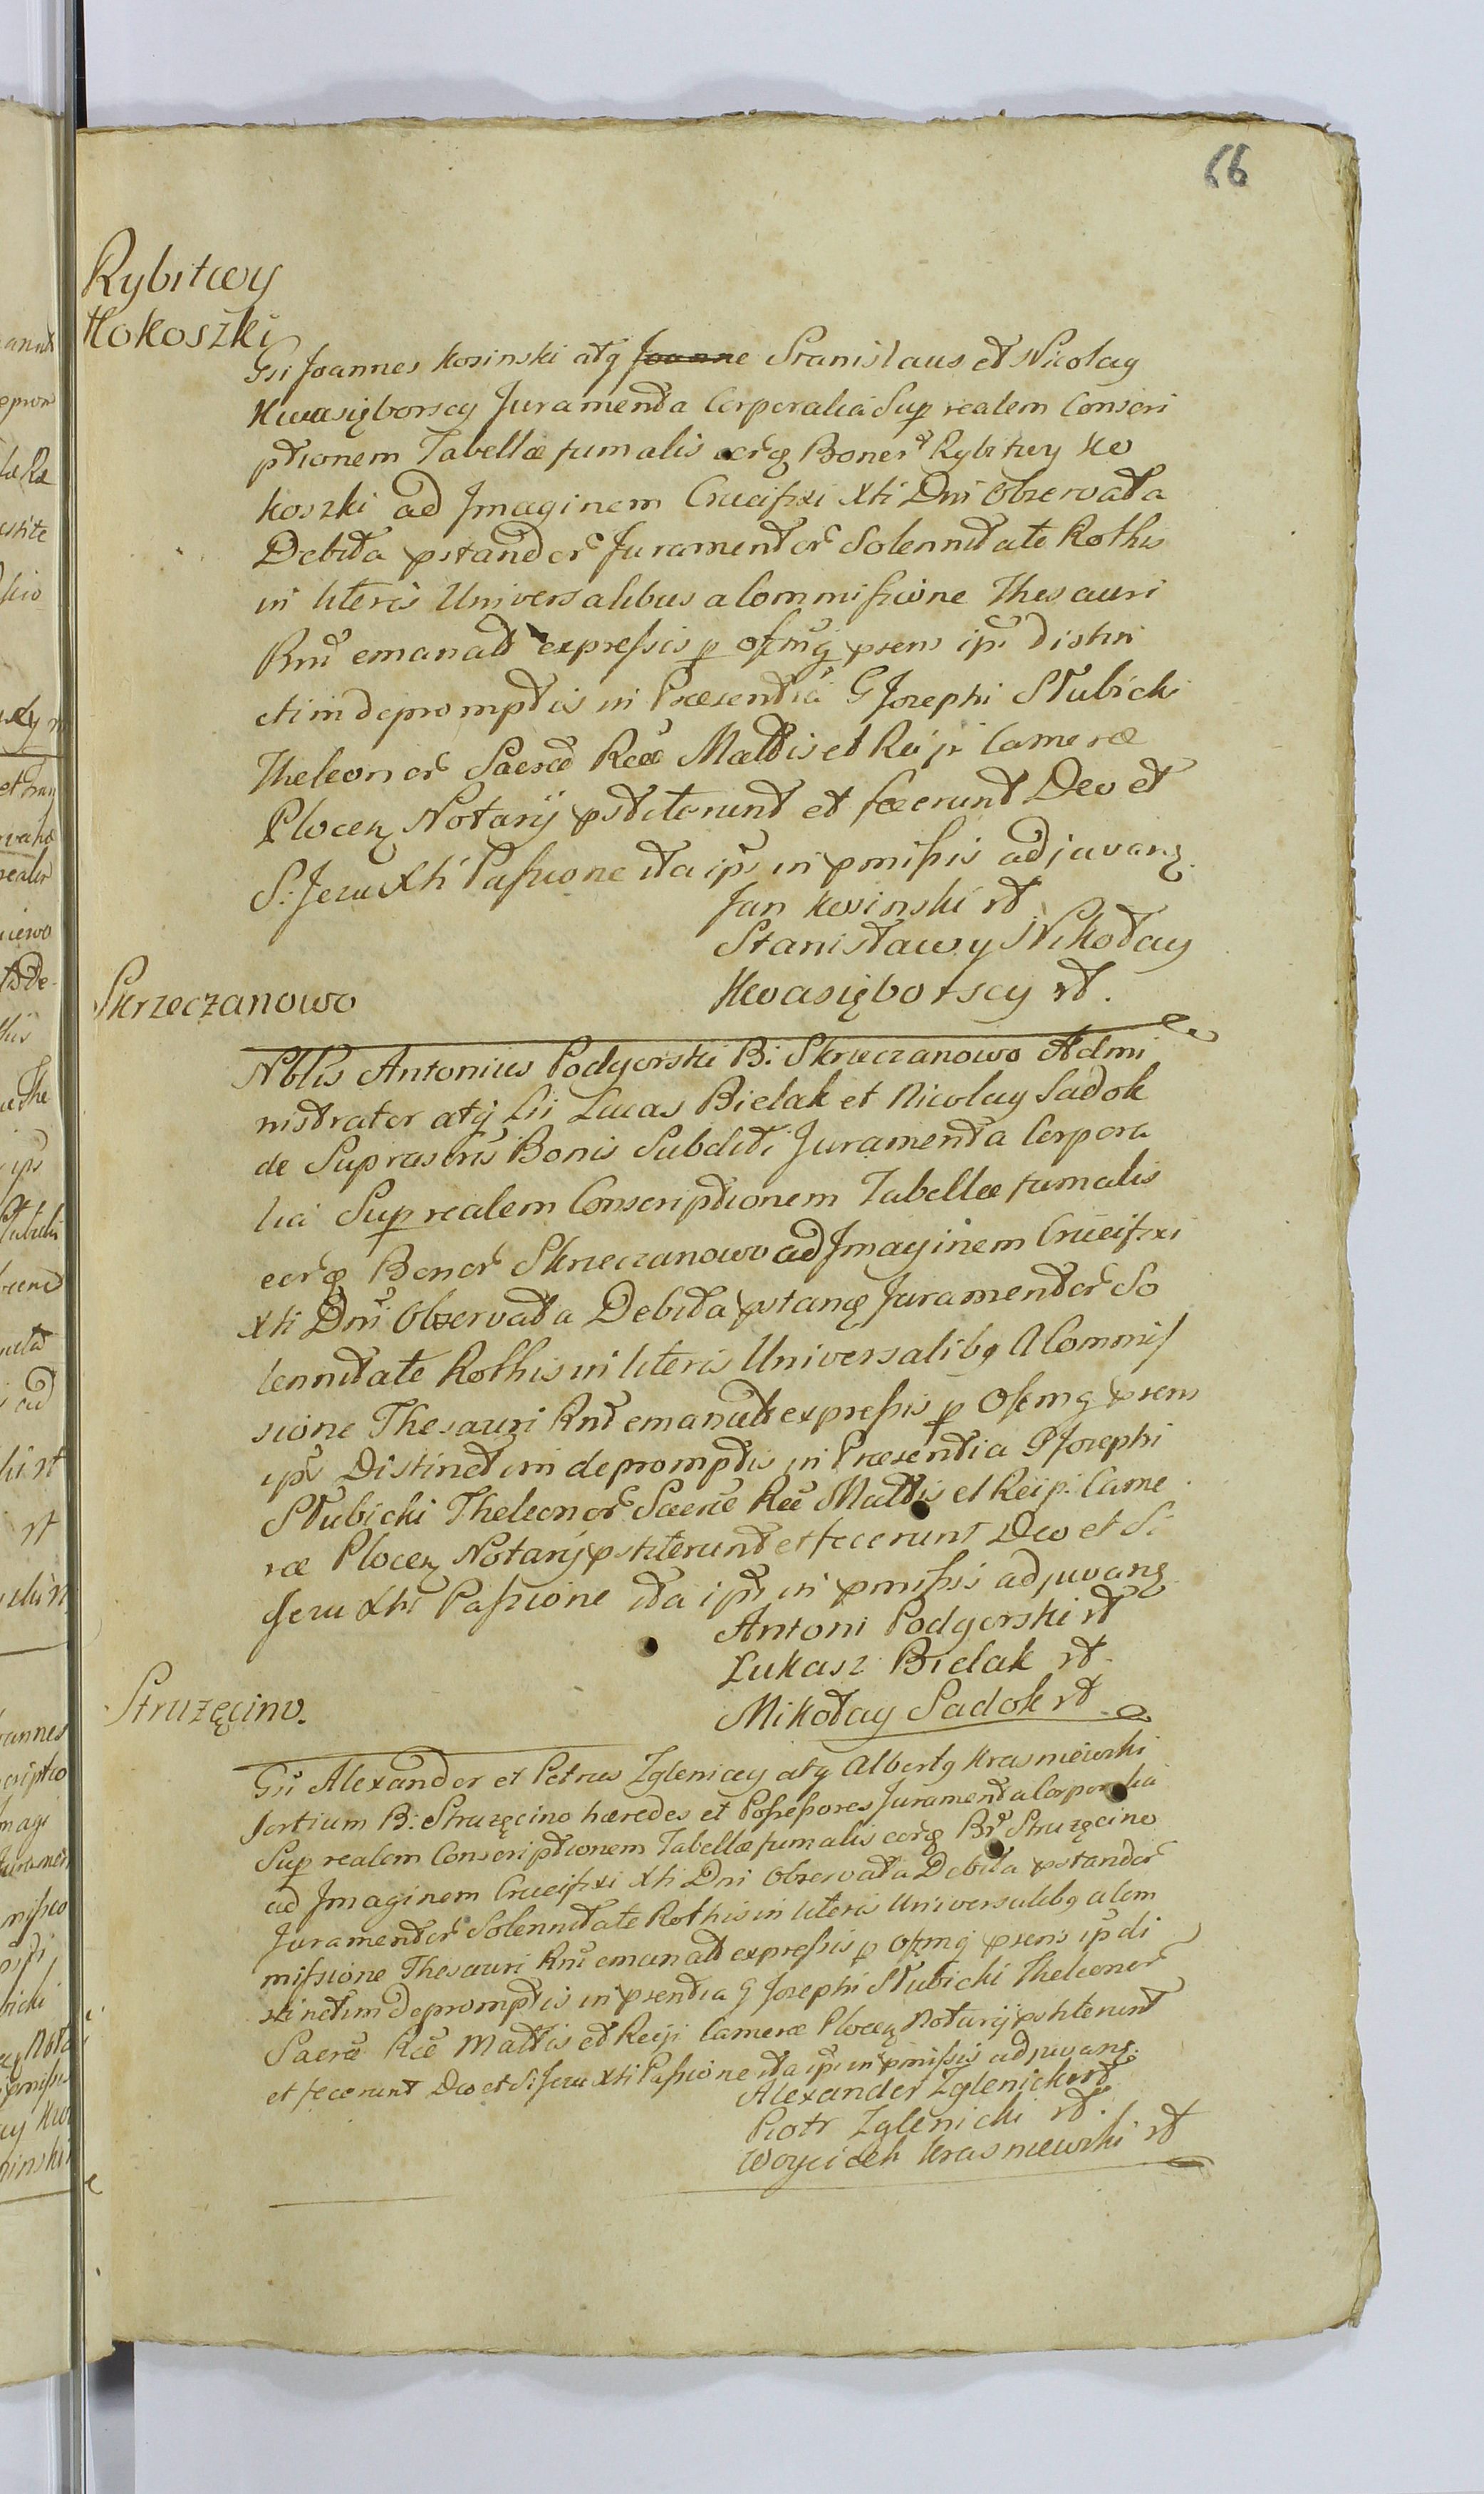 66
Rybitwy
Kokoszki
Gsi Joannes Kosinski atq Joanne Stanislaus et Nicolaÿ
Kwasigborscy Juramenta Corporalia Sup realem Conscri
ptionem Tabellæ fumalis eorq Bonor Rybitwy Ko
koszki ad Imaginem Crucifixi Xti Dni Observata
Debita pstandor Juramentor Solennitate Rothis
in literis Universalibus a Commissione Thesauri
Rni emanatt expressis p Ofmq psens ips distin
ctim depromptis in Præsentia G Josephi Słubicki
Theleonor Sacræ Ræ Mattis et Reip: Cameræ
Plocen Notarij pstiterunt et fecerunt Deo et
S: Jesu Xti Passione ita ips in pmissis adjuvang.
Jan Kosinski rt
Stanisław y Nikołay
Kwasięborscy rt.
Skrzeczanowo
Nblis Antonius Podgorski B: Skrzeczanowo Admi
nistrator atq Lii Lucas Bielak et Nicolaÿ Sadok
de Suprascris Bonis Subditi Juramenta Corpora
lia Sup realem Conscriptionem Tabellæ fumalis
eorq Bonor Skrzeczanowo ad Imaginem Crucifixi
Xti Dni Observata Debita pstang Juramentor So
lennitate Rothis in literis Universalibq a Commis
sione Thesauri Rni emanatt expressis p Ofmq psens
ips Distinctim depromptis in Præsentia G Josephi
Słubicki Theleonor Sacræ Ræ Mattis et Reip: Came
ræ Plocen Notarij pstiterunt et fecerunt Deo et S:
Jesu Xti Passione ita ips in pmissis adjuvang
Antoni Podgorski rt
Łukasz Bielak rt
Mikołay Sadok rt
Struzęcino.
Gsi Alexander et Petrus Zglenicey atq Albertq Krasniewski
Sortium B: Struzęcino hæredes et Possessores Juramenta Corporalia
Sup realem Conscriptionem Tabellæ fumalis eorq Br Struzęcino
ad Imaginem Crucifixi Xti Dni Observata Debita pstandor
Juramentor Solennitate Rothis in literis Universalibq a Com
missione Thesauri Rni emanatt expressis p Ofmq psens ips di
stinctim depromptis in psentia G Josephi Słubicki Theleonor
Sacræ Ræ Mattis et Reip: Cameræ Plocen Notarij pstiterunt
et fecerunt Deo et S: Jesu Xti Passione ita ips in pmissis adjuvang.
Alexander Zglenicki rt
Piotr Zglenicki rt.
Woyciech Krasniewski rt